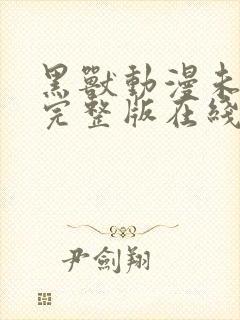 黑獸動漫未
完整版在綫
尹劍翔